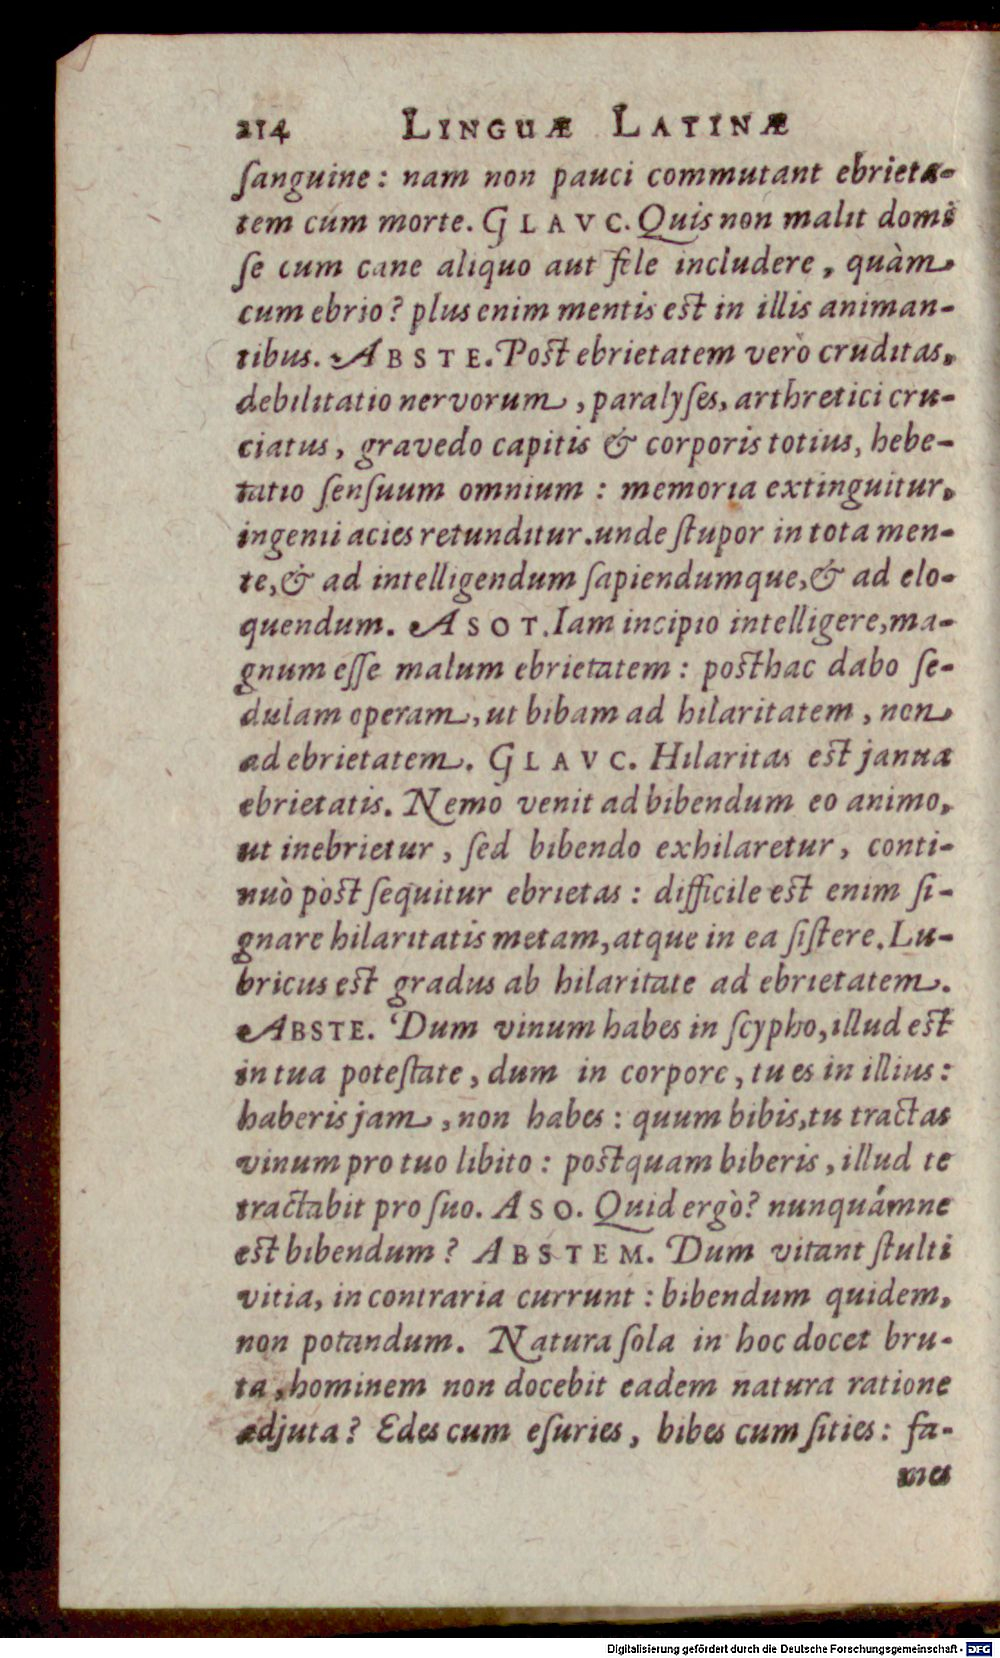 214 LINGUÆ LATINÆ
ſanguine: nam non pauci commutant ebrieta-
tem cum morte. GLAVC. Quis non malit domi
ſe cum cane aliquo aut fele includere, quàm
cum ebrio? plus enim mentis est in illis animan-
tibus. ABSTE. Post ebrietatem verò cruditas,
debilitatio nervorum, paralyſes, arthretici cru-
ciatus, gravedo capitis & corporis totius, hebe-
tatio ſenſuum omnium: memoria extinguitur,
ingenii acies retunditur. unde ſtupor in tota men-
te, & ad intelligendum ſapiendumque, & ad elo-
quendum. ASOT. Iam incipio intelligere, ma-
gnum eſſe malum ebrietatem: posthac dabo ſe-
dulam operam, ut bibam ad hilaritatem, non
ad ebrietatem. GLAVC. Hilaritas est janua
ebrietatis. Nemo venit ad bibendum eo animo,
ut inebrietur, ſed bibendo exhilaretur, conti-
nuò pòst ſequitur ebrietas: difficile est enim ſi-
gnare hilaritatis metam, atque in ea ſiſtere. Lu-
bricus est gradus ab hilaritate ad ebrietatem.
ABSTE. Dum vinum habes in ſcypho, illud est
in tua poteſtate, dum in corpore, tu es in illius:
haberis jam, non habes: quum bibis, tu tractas
vinum pro tuo libito: postquam biberis, illud te
tractabit pro ſuo. ASO. Quid ergò? nunquámne
est bibendum? ABSTEM. Dum vitant ſtulti
vitia, in contraria currunt: bibendum quidem,
non potandum. Natura ſola in hoc docet bru-
ta, hominem non docebit eadem natura ratione
adjuta? Edes cum eſuries, bibes cum ſities: fa-
mes
Digitalisierung gefördert durch die Deutsche Forschungsgemeinschaft - DFG